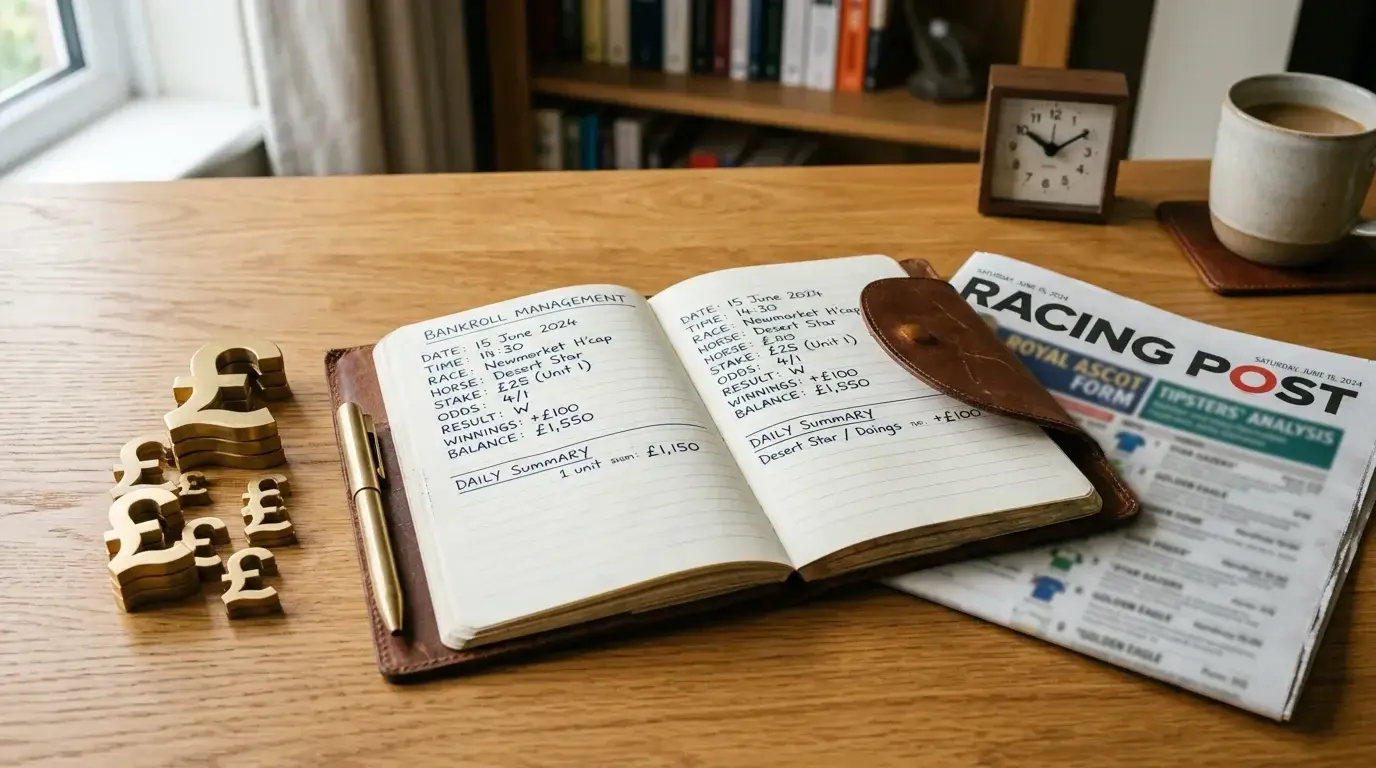 BANKROLL MANAGEMENT
DATE: 15 June 2024
TIME: 14:30
RACE: Newmarket H'cap
HORSE: Desert Star
STAKE: £25 (Unit 1)
ODDS: 4/1
RESULT: W
WINNINGS: +£100
BALANCE: £1,550
DAILY SUMMARY
1 unit £1,150
DATE: 15 June 2024
TIME: 14:30
RACE: Newmarket H'cap
HORSE: Desert Star
HORSE:
STAKE: £25 (Unit 1)
ODDS: 4/1
RESULT: W
WINNINGS: +£100
BALANCE: £1,550
DAILY SUMMARY
Desert Star / Doings +£100
SATURDAY, JUNE 15, 2024
RACING POST
SATURDAY, JUNE 15, 2024
ROYAL ASCOT
FORM
TIPSTERS' ANALYSIS
GOLDEN EAGLE
GOLDEN EAGLE
"GOLDEN EAGLE
10 11 12 1 2
3
4
5
6
7